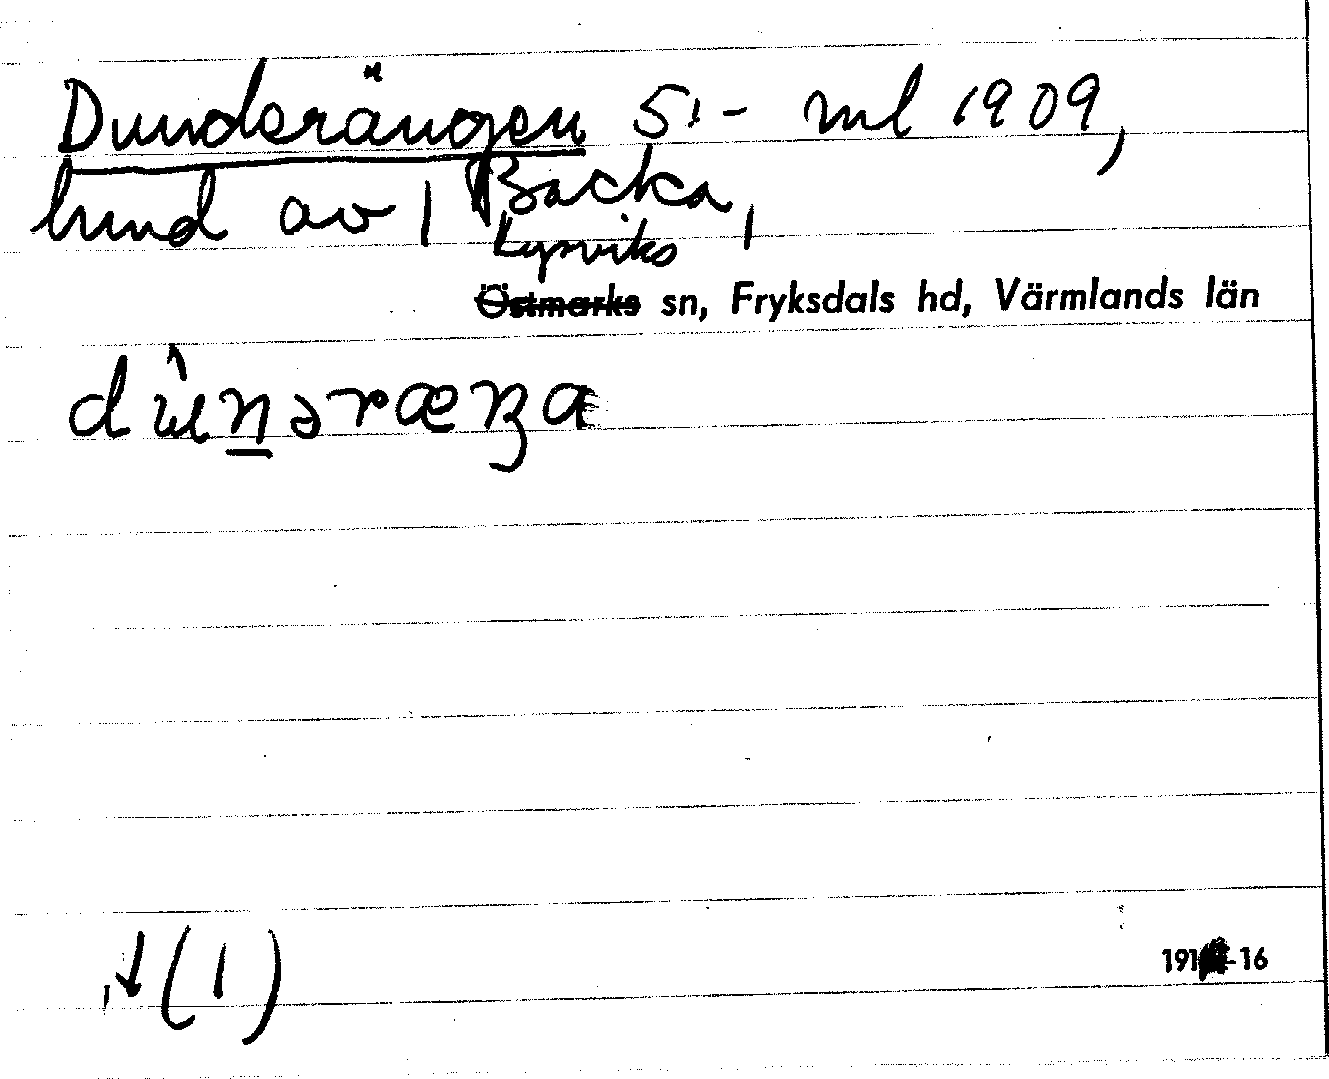 Dunderängen S1- ml 1909,
hund av 1 Backa,
Lysviks
Östmarks sn, Fryksdals hd, Värmlands län
(1)
16